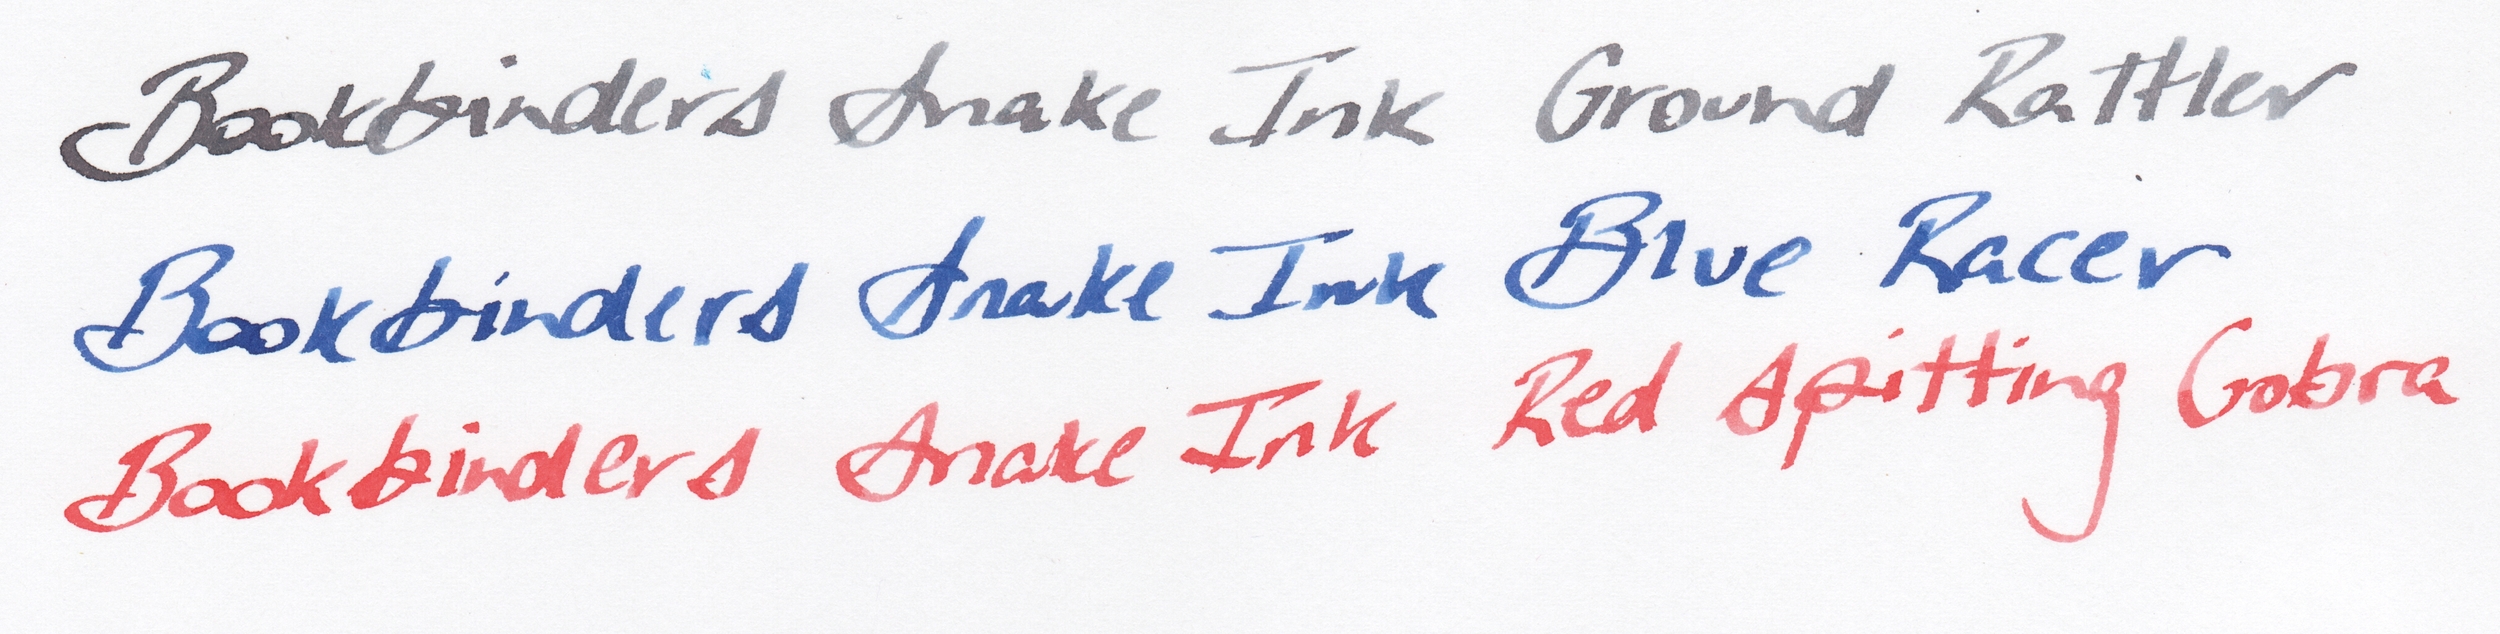 Bookbinders Snake Ink Ground Rattler
Bookbinders Snake Ink Blue Racer
Bookbinders Snake Ink Red Spitting Cobra